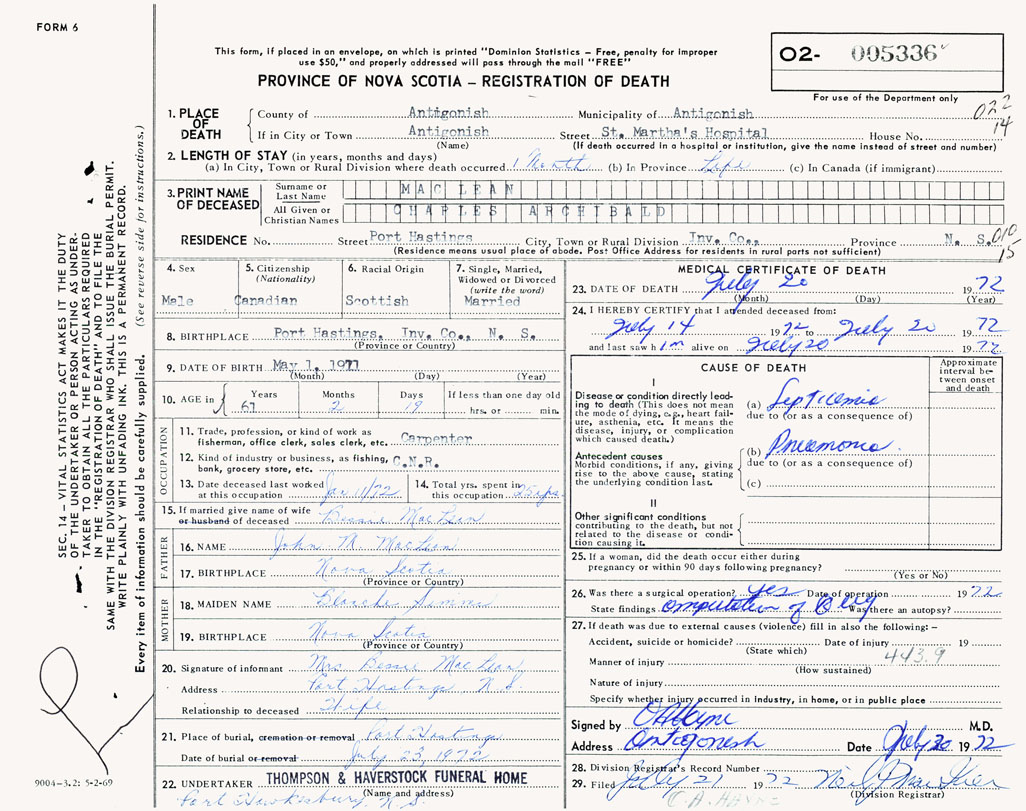 FORM 6
This form, if placed in an envelope, on which is printed "Dominion Statistics – Free, penalty for improper
use $50," and properly addressed will pass through the mail "FREE"
PROVINCE OF NOVA SCOTIA – REGISTRATION OF DEATH
O2- 005336
For use of the Department only
022
14
1. PLACE OF DEATH
County of Antigonish Municipality of Antigonish
If in City or Town Antigonish Street St. Martha's Hospital House No.
(Name) (If death occurred in a hospital or institution, give the name instead of street and number)
2. LENGTH OF STAY (in years, months and days)
(a) In City, Town or Rural Division where death occurred 1 Month (b) In Province Life (c) In Canada (if immigrant)
3. PRINT NAME OF DECEASED
Surname or Last Name MAC LEAN
All Given or Christian Names CHARLES ARCHIBALD
RESIDENCE No. Street Port Hastings City, Town or Rural Division Inv. Co., Province N. S.
010
15
(Residence means usual place of abode. Post Office Address for residents in rural parts not sufficient)
4. Sex
Male
5. Citizenship
(Nationality)
Canadian
6. Racial Origin
Scottish
7. Single, Married,
Widowed or Divorced
(write the word)
Married
8. BIRTHPLACE Port Hastings, Inv. Co., N. S.
(Province or Country)
9. DATE OF BIRTH May 1, 
(Month) (Day) (Year)
10. AGE in
Years Months Days If less than one day old
2 19 hrs. or min.
OCCUPATION
11. Trade, profession, or kind of work as
fisherman, office clerk, sales clerk, etc. Carpenter
12. Kind of industry or business, as fishing,
bank, grocery store, etc. C.N.R.
13. Date deceased last worked
at this occupation Jan 11/72
14. Total yrs. spent in
this occupation 25 yrs.
15. If married give name of wife
or husband of deceased Bessie MacLean
FATHER
16. NAME John M. MacLean
17. BIRTHPLACE Nova Scotia
(Province or Country)
MOTHER
18. MAIDEN NAME Blanche
19. BIRTHPLACE Nova Scotia
(Province or Country)
20. Signature of informant Mrs Bessie MacLean
Address Port Hastings N.S.
Relationship to deceased Wife
21. Place of burial, cremation or removal Port Hastings
Date of burial or removal July 23, 1972
22. UNDERTAKER THOMPSON & HAVERSTOCK FUNERAL HOME
(Name and address)
Port Hawkesbury, N.S.
MEDICAL CERTIFICATE OF DEATH
23. DATE OF DEATH July 20 1972
(Month) (Day) (Year)
24. I HEREBY CERTIFY that I attended deceased from:
July 14 1972 to July 20 1972
and last saw him alive on July 20 1972
CAUSE OF DEATH
Approximate
interval be-
tween onset
and death
I
Disease or condition directly lead-
ing to death (This does not mean
the mode of dying, e.g., heart fail-
ure, asthenia, etc. It means the
disease, injury, or complication
which caused death.)
(a) Septicemia
due to (or as a consequence of)
Antecedent causes
Morbid conditions, if any, giving
rise to the above cause, stating
the underlying condition last.
(b) Pneumonia
due to (or as a consequence of)
(c)
II
Other significant conditions
contributing to the death, but not
related to the disease or condi-
tion causing it.
25. If a woman, did the death occur either during
pregnancy or within 90 days following pregnancy?
(Yes or No)
26. Was there a surgical operation? yes Date of operation 1972
State findings amputation of Was there an autopsy?
27. If death was due to external causes (violence) fill in also the following: –
Accident, suicide or homicide? Date of injury 19
(State which)
443.9
Manner of injury
(How sustained)
Nature of injury
Specify whether injury occurred in industry, in home, or in public place
Signed by M.D.
Address Antigonish Date July 20 1972
28. Division Registrar's Record Number
29. Filed July 21 1972
(Division Registrar)
C. A. HAYNE
SEC. 14 – VITAL STATISTICS ACT MAKES IT THE DUTY
OF THE UNDERTAKER OR PERSON ACTING AS UNDER-
TAKER TO OBTAIN ALL THE PARTICULARS REQUIRED
IN THE "REGISTRATION OF DEATH" AND TO FILE THE
SAME WITH THE DIVISION REGISTRAR WHO SHALL ISSUE THE BURIAL PERMIT.
WRITE PLAINLY WITH UNFADING INK. THIS IS A PERMANENT RECORD.
Every item of information should be carefully supplied. (See reverse side for instructions.)
9004-3.2: 5-2-69